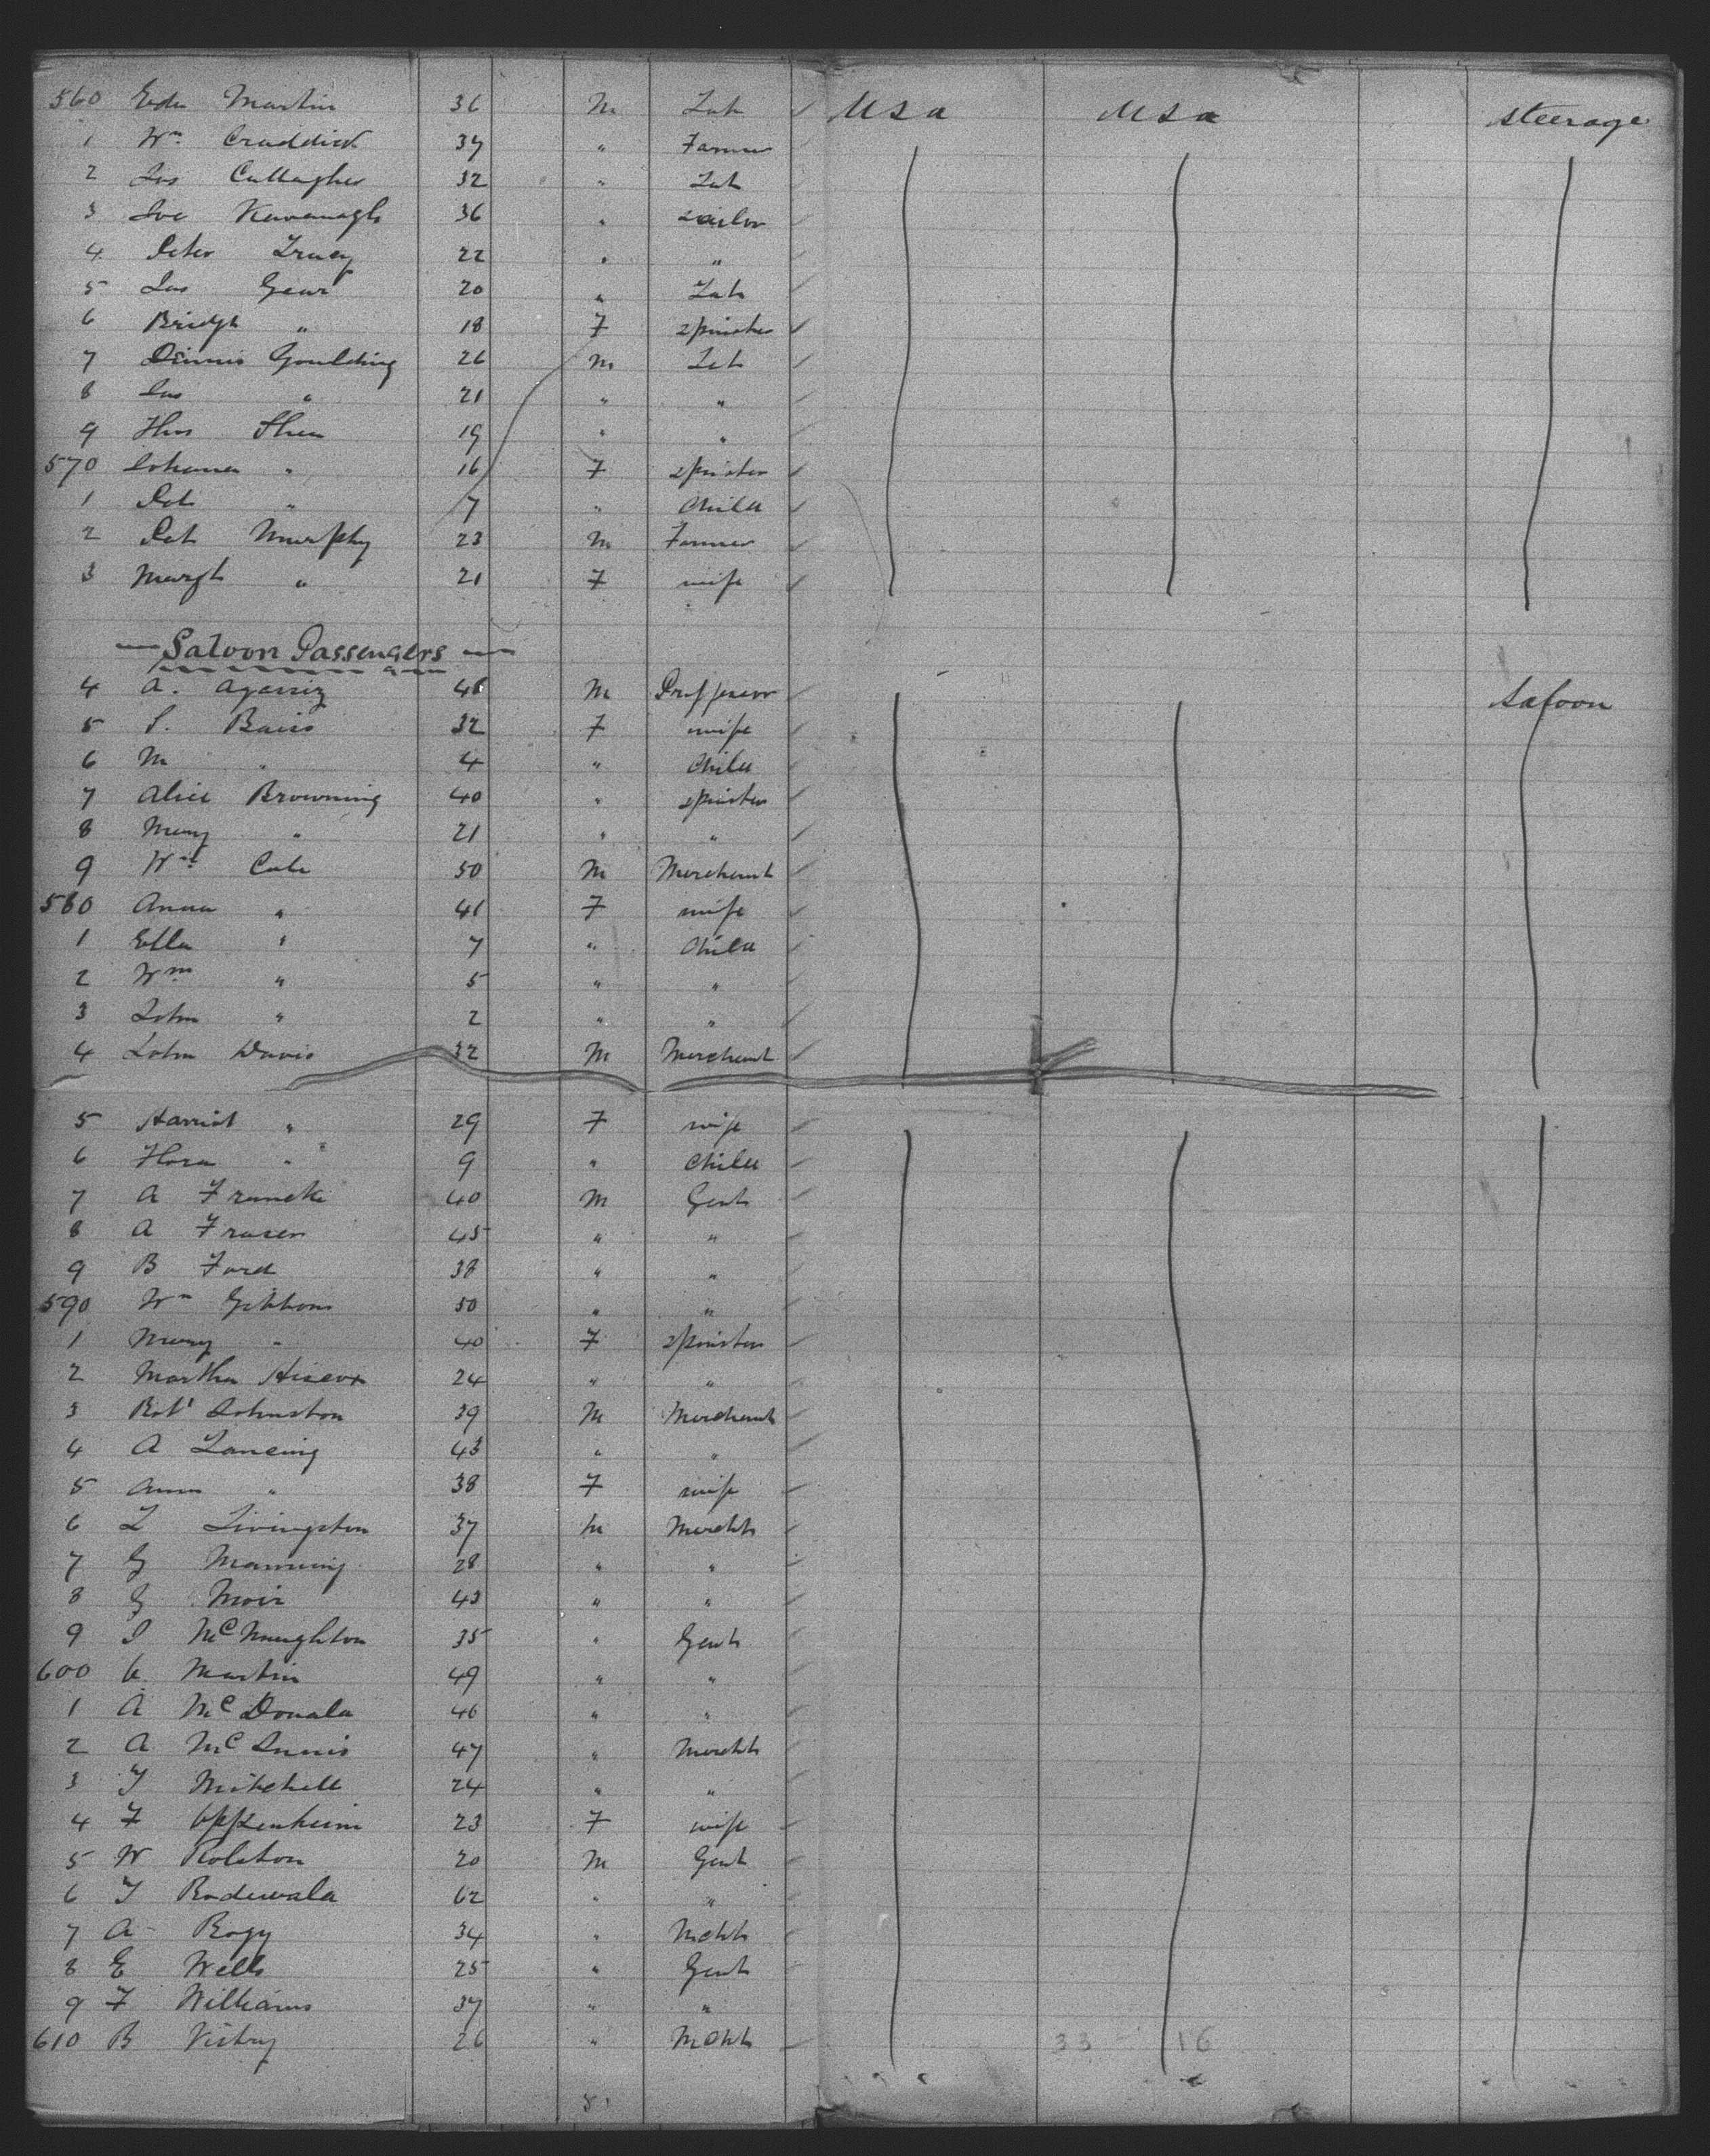 560 Edw Martin 36 M Lab USA USA steerage
1 Wm Craddick 34 " Farmer
2 Jas Callagher 32 " Lab
3 Joe Kavanagh 36 " sailor
4 Peter Tracy 22 " "
5 Jas Gear 20 " Lab
6 Bridgt " 18 F spinster
7 Dennis Goulding 26 M Lab
8 Jas " 21 " "
9 Thos Shea 19 " "
570 Johanna " 16 F spinster
1 Pat " 7 " Child
2 Pat Murphy 23 M Farmer
3 Margt " 21 F wife
— Saloon Passengers —
4 A. Agassiz M Proffessor Saloon
5 S. 32 F wife
6 M " 4 " Child
7 Alice Browning 40 " spinster
8 Mary " 21 " "
9 Wm 50 M Merchant
580 Anna " 41 F wife
1 Ella " 7 " Child
2 Wm " 5 " "
3 John " 2 " "
4 John Davis 32 M Merchant
5 Harriet " 29 F wife
6 Flora " 9 " Child
7 A Francke 40 M Gent
8 A Fraser 45 " "
9 B Ford 38 " "
590 Wm Gibbons 50 " "
1 Mary " 40 F spinster
2 Martha Hiscox 24 " "
3 Robt Johnston 39 M Merchant
4 A Lansing 43 " "
5 Anna " 38 F wife
6 L Livingston 37 M Merchts
7 G Manning 28 " "
8 G Moir 43 " "
9 J McNaughton 35 " Gent
600 Martin 49 " "
1 A McDonald 46 " "
2 A McInnis 47 " Merchts
3 T Mitchell 24 " "
4 F Oppenheim 23 F wife
5 W Rolston 20 M Gent
6 T Rodewald 62 " "
7 A Rogy 34 " Mcht
8 E Wells 25 " Gent
9 F Williams 37 " "
610 B 26 " Mcht 33 16